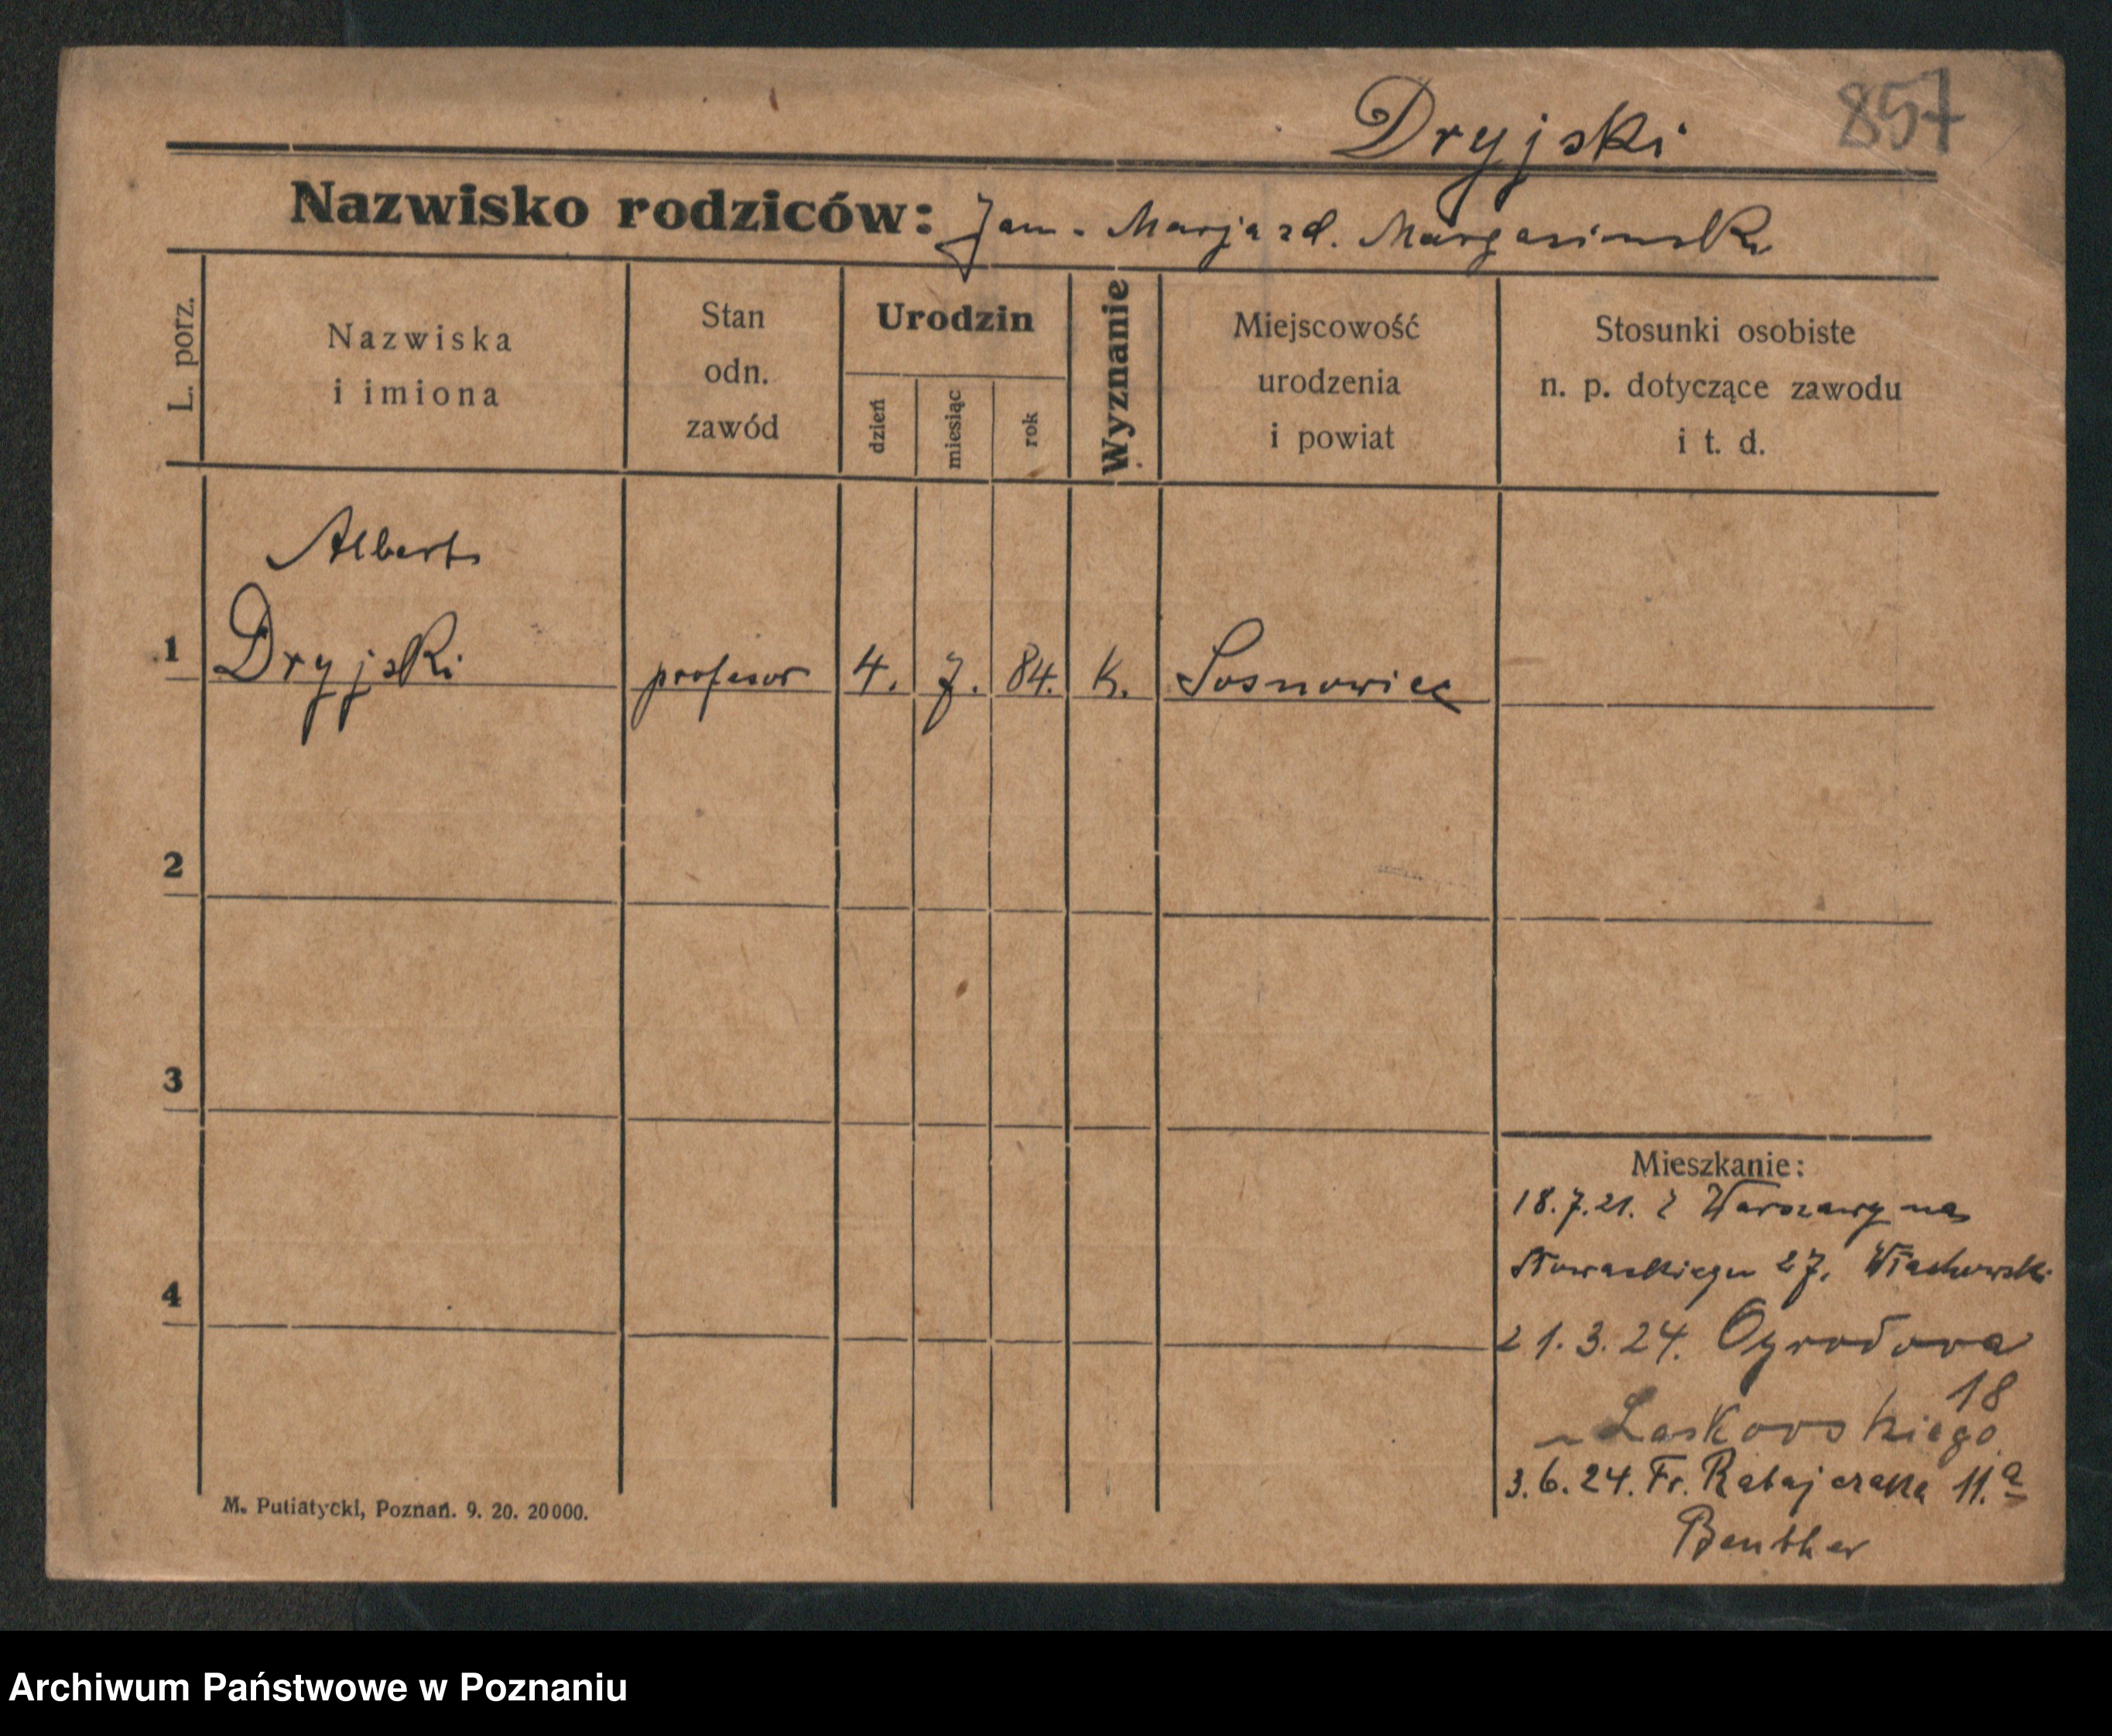 857
Dryjski
Nazwisko rodziców: Jan - Marja zd. Margasinska
L. porz.
Nazwiska
i imiona
Stan
odn.
zawód
Urodzin
dzień
miesiąc
rok
Wyznanie
Miejscowość
urodzenia
i powiat
Stosunki osobiste
n. p. dotyczące zawodu
i t. d.
Albert
1 Dryjski profesor 4. 7. 84. K. Sosnowiec
2
3
4
Mieszkanie:
18.7.21. z Warszawy na
Słowackiego 27. Wlachowski
21.3.24. Ogrodova
18
Laskovskiego
3.6.24. Fr. Ratajczaka 11.a
Beuther
M. Putiatycki, Poznań. 9. 20. 20000.
Archiwum Państwowe w Poznaniu